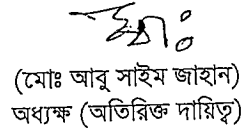 (মোঃ আবু সাইম জাহান)
অধ্যক্ষ (অতিরিক্ত দায়িত্ব)